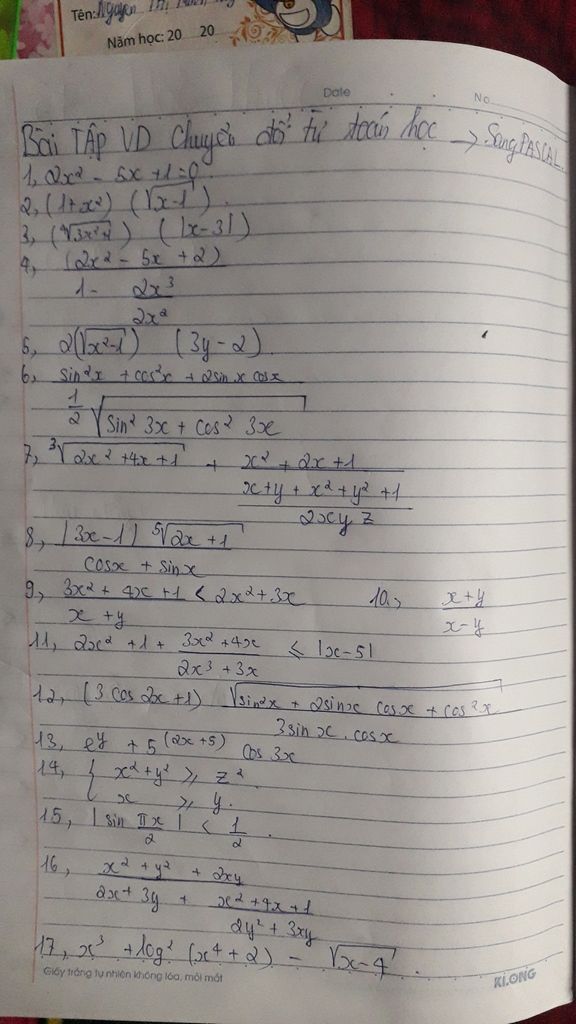 Tên: Nguyễn Th
Năm học: 20 20
Date
No
Bài TẬP VD Chuyển đổi từ toán học → Sang PASCAL
1, 2x² - 5x + 1 = 0.
2, (1 + x²) (√(x - 1)).
3, (|x - 3|)
4, (2x² - 5x + 2) / (1 - 2x³/2x²)
5, 2(√(x² - 1)) (3y - 2).
6, (sin²x + cos²x + 2sin x cosx) / (1/2 √(sin² 3x + cos² 3x))
7, ³√(2x² + 4x + 1) + (x² + 2x + 1) / ((x + y + x² + y² + 1) / 2xyz)
8, |3x - 1| ⁵√(2x + 1) / (cosx + sinx)
9, (3x² + 4x + 1) / (x + y) < 2x² + 3x 10, (x + y) / (x - y)
11, 2x² + 1 + (3x² + 4x) / (2x³ + 3x) ≤ |x - 5|
12, (3 cos 2x + 1) √(sin²x + 2sinx cosx + cos²x) / (3sin x . cosx)
13, e^y + 5^(2x + 5) cos 3x
14, { x² + y² ≥ z².
x ≥ y.
15, |sin πx/2| < 1/2.
16, (x² + y² + 2xy) / (2x + 3y + (x² + 4x + 1) / (2y² + 3xy))
17, x³ + log² (x⁴ + 2) - √(x - 4).
Giấy trắng tự nhiên không lóa, mỏi mắt
KLONG